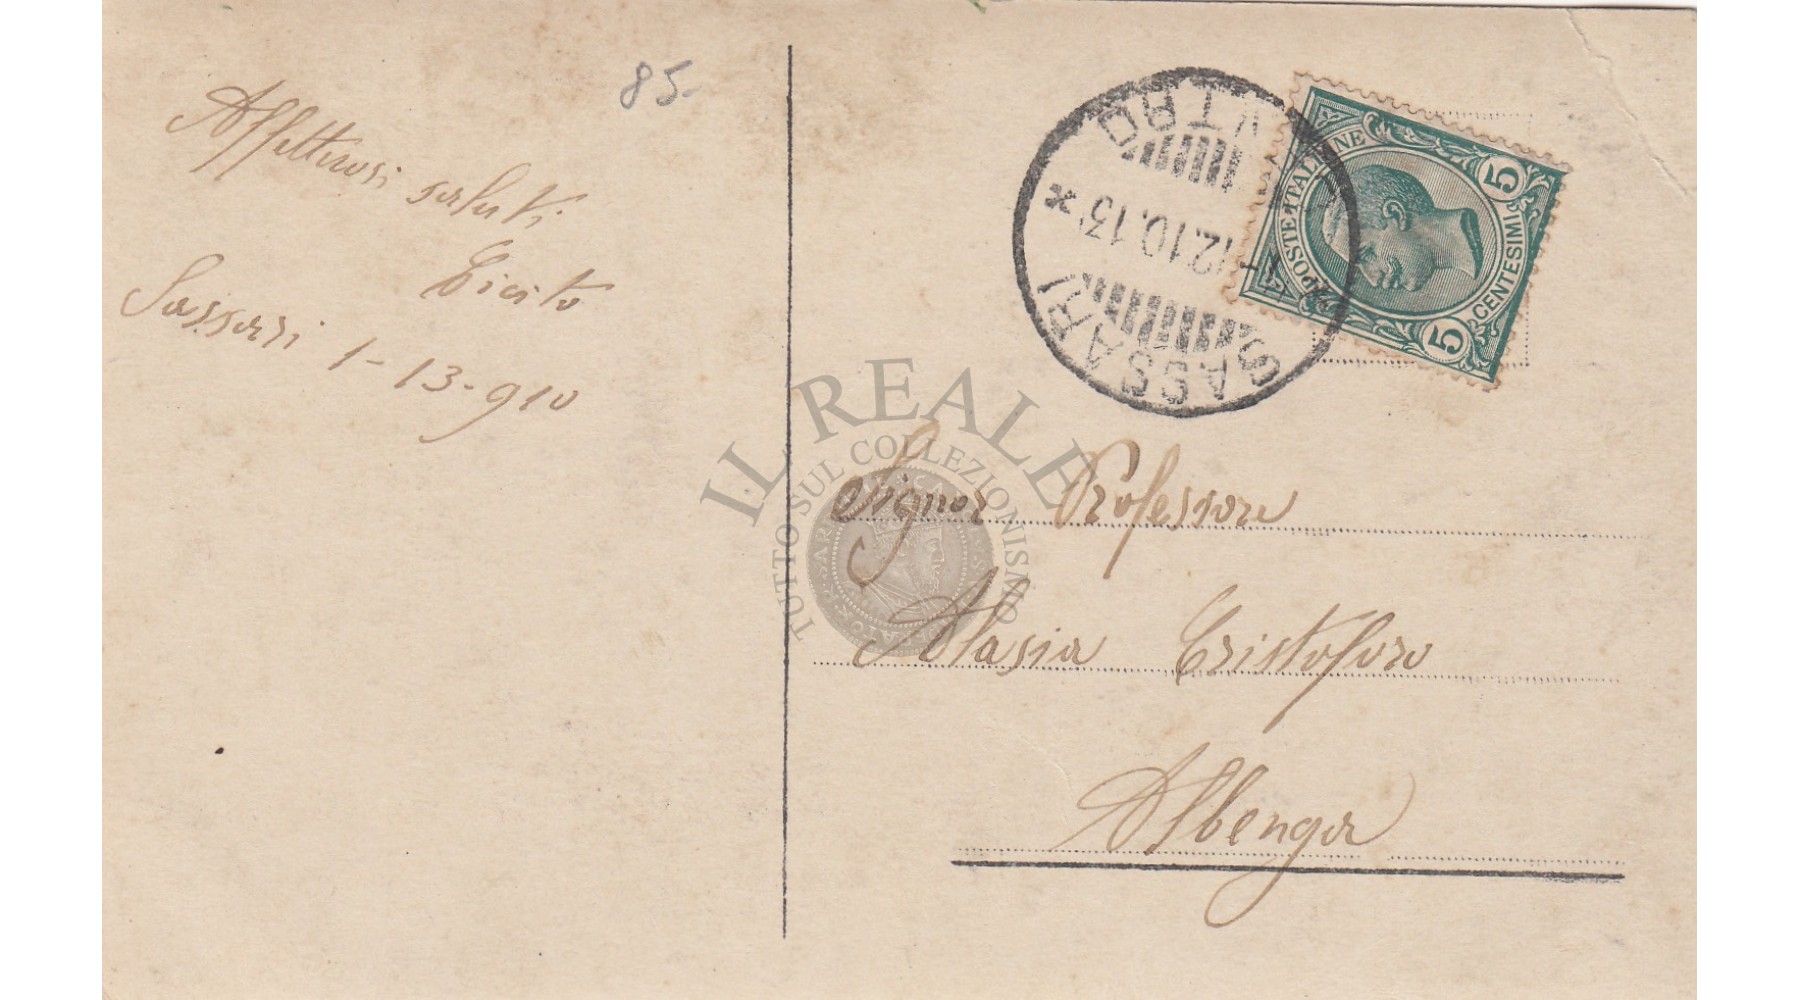 85-
Affettuosi saluti
Sassari 1-13-910
SASSARI
12.10.13
POSTE ITALIANE
5 CENTESIMI 5
IL REALE
TUTTO SUL COLLEZIONISMO
Signor Professore
Alasia Cristoforo
Albenga